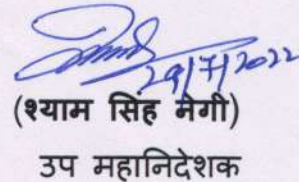 29/7/2022
(श्याम सिंह नेगी)
उप महानिदेशक